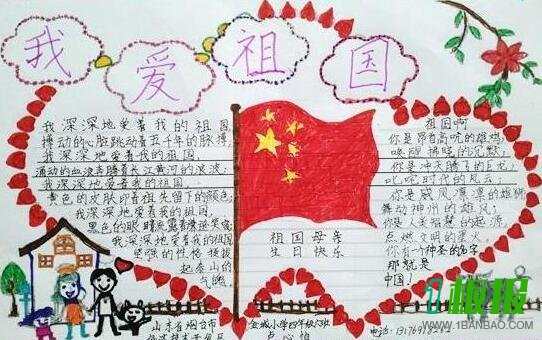 我爱祖国
我深深地爱着我的祖国,
搏动的心脏跳动着五千年的脉搏,
我深深地爱着我的祖国,
涌动的血液奔腾着长江黄河的浪波;
我深深地爱着我的祖国
黄色的皮肤印着祖先留下的颜色;
我深深地爱着我的祖国,
黑色的眼睛流露着
我深深地爱着我的祖国
坚强的性格挺拔
起泰山的
气魄
祖国母亲
生日快乐
祖国啊
你是昂首高吭的雄鸡
唤醒拂晓的沉默,
你是冲天腾飞的巨龙,
叱咤时代的风云,
你是威风凛凛的雄狮
舞动神州的雄风,
你是人类智慧的起源,
点燃文明的星火。
你有一个神圣的名字
那就是
中国!
山东省烟台市
金城小学四年级六班
电话:
1板报
WWW.1BANBAO.COM